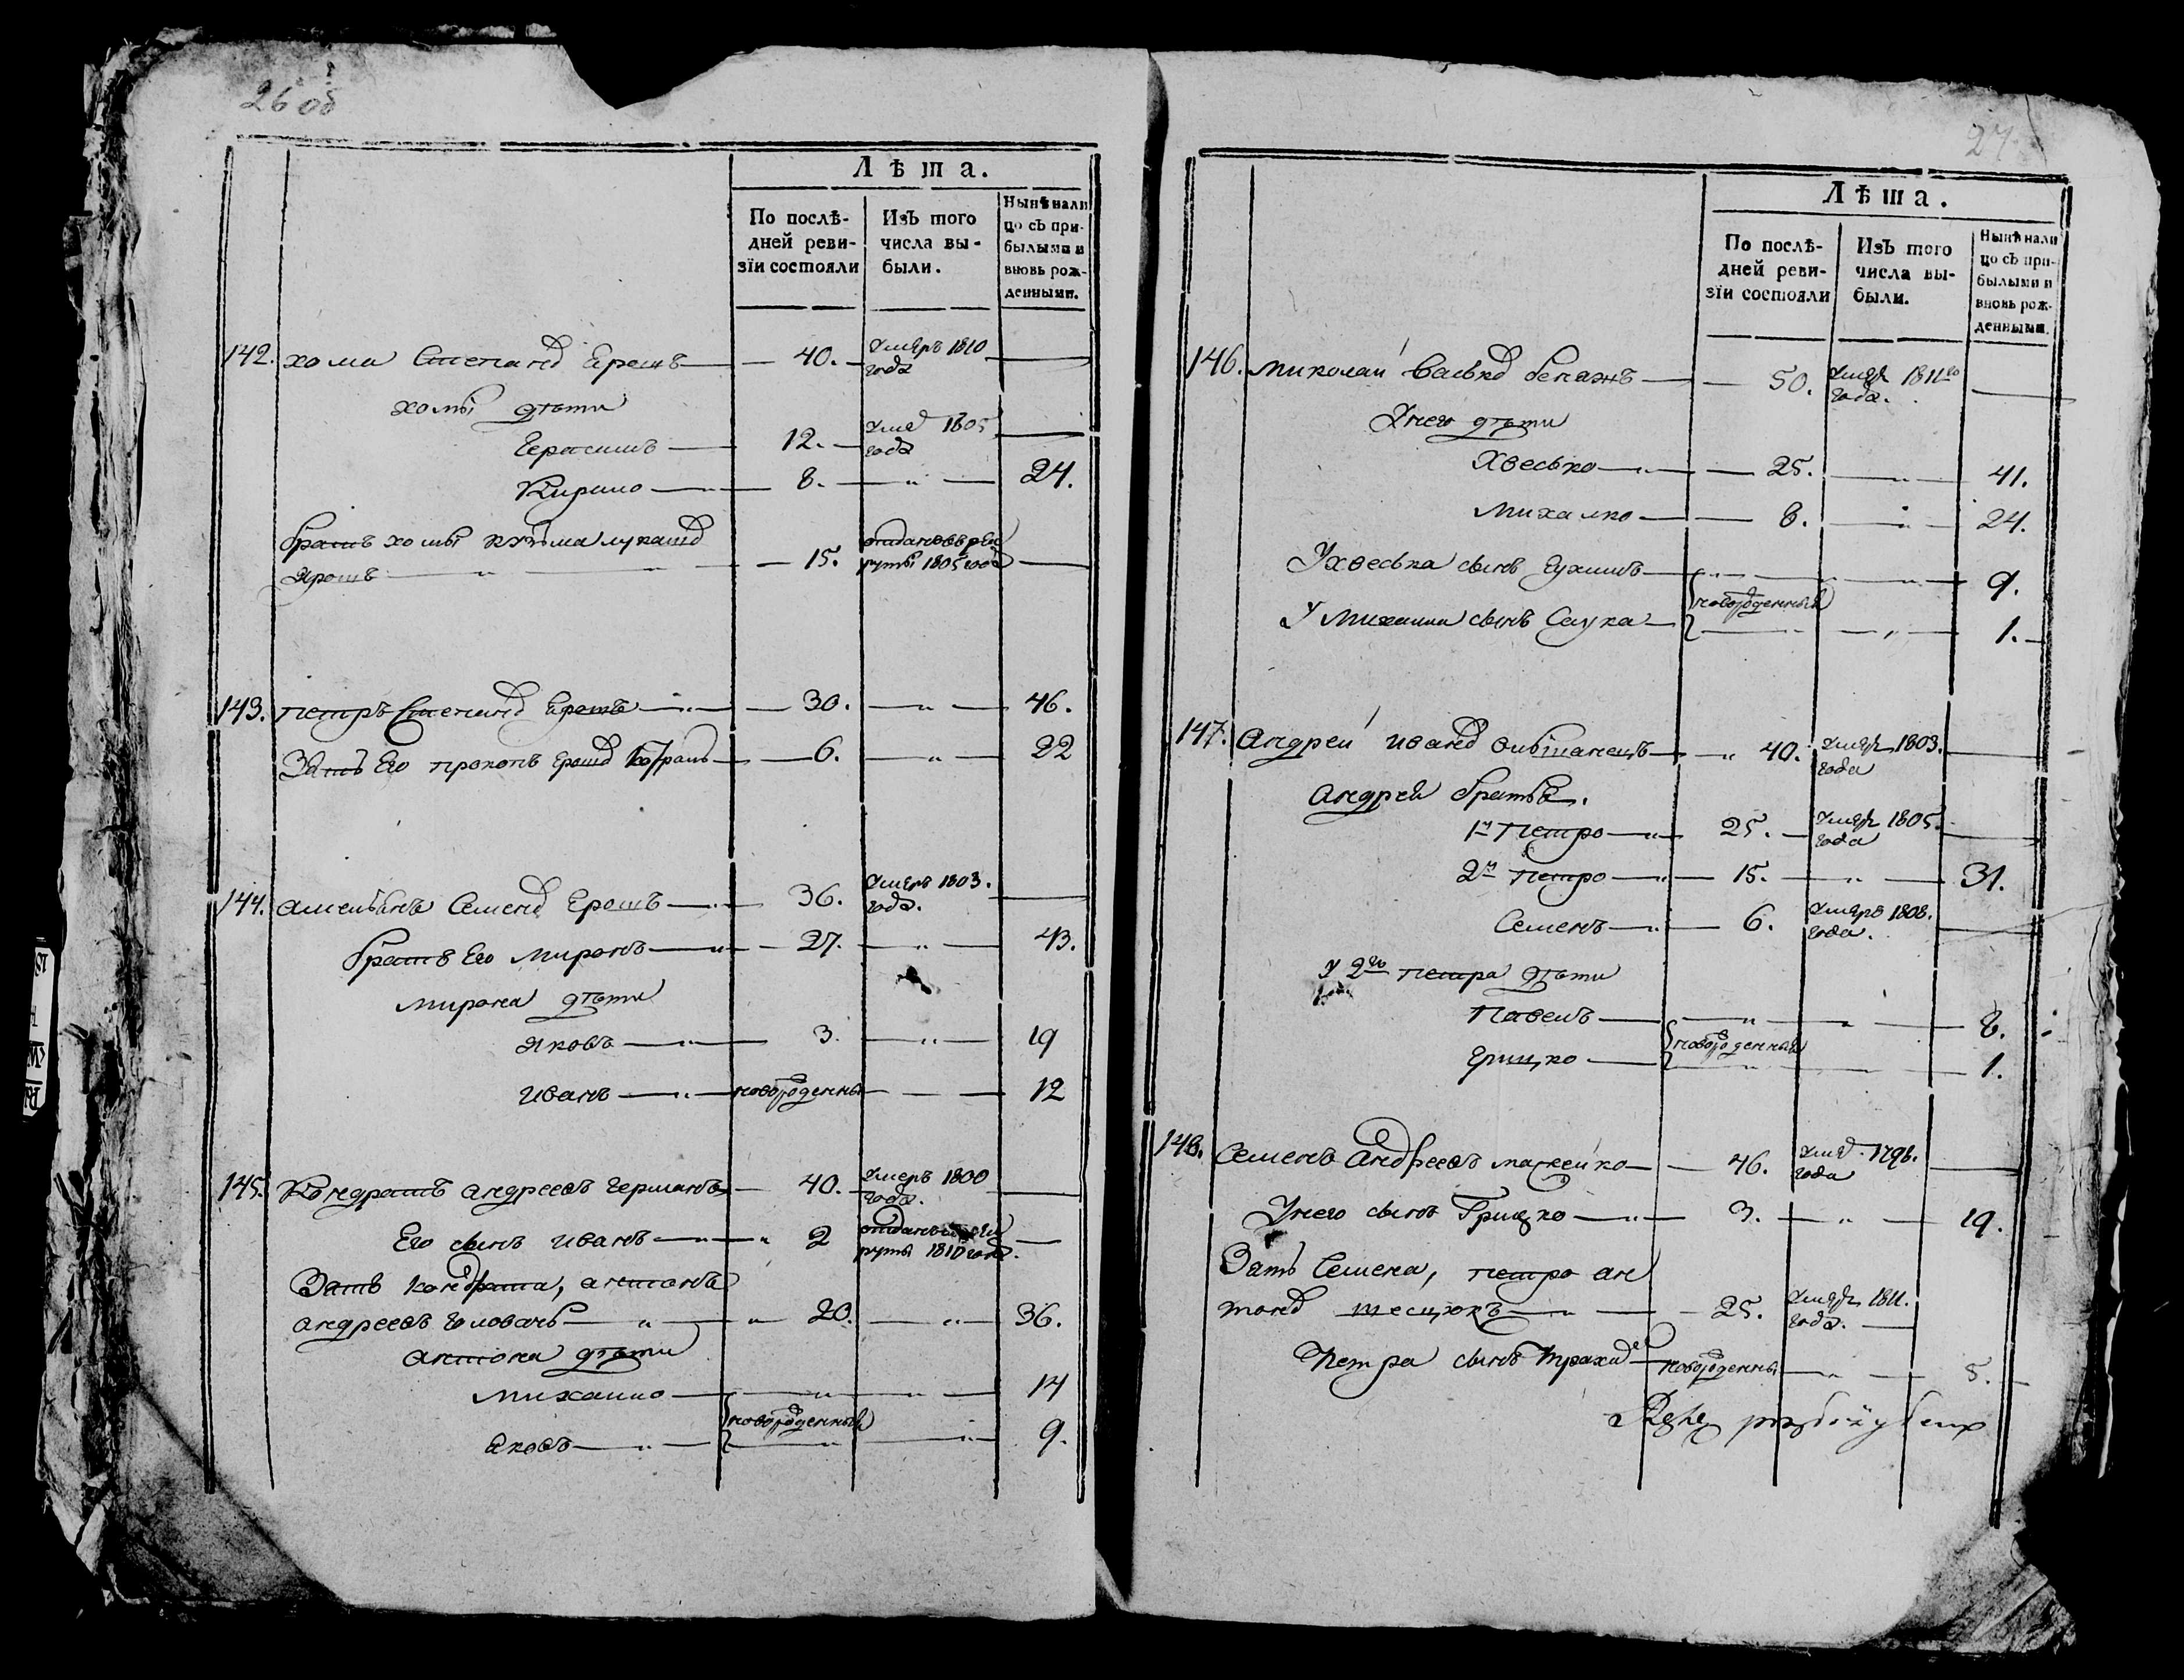 26 об
Лѣта.
По послѣ-
дней реви-
зїи состояли
Изъ того
числа вы-
были.
Нынѣ нали
цо съ при-
былыми и
вновь рож-
денными.
142. хома Степанов Ерошъ 40. Умеръ 1810
года
хомы дѣти
Герасимъ 12. Умер 1805
года
Кирило 8. 24.
братъ хомы кузьма лукашов
Ярошъ 15. отданъ въ рек
руты 1805 года
143. петръ Степанов Ерошъ 30. 46.
Зять Его прокопъ 6. 22
144. Семенов Ерошъ 36. Умеръ 1803.
года.
братъ Его миронъ 27. 43.
мирона дѣти
яковъ 3. 19
иванъ новорожденны 12
145. Кондратъ андреевъ германъ 40. Умеръ 1800
года.
Его сынъ иванъ 2 отданъ рек
руты 1810 года.
Зять кондрата, антонъ
андреевъ головачь 20. 36.
антона дѣти
михаило 14
новорожденныя
яковъ 9.
27
Лѣта.
По послѣ-
дней реви-
зїи состояли
Изъ того
числа вы-
были.
Нынѣ нали
цо съ при-
былыми и
вновь рож-
денными.
146. миколай васьков 50. Умер 1811го
года.
Унего дѣти
Хвеско 25. 41.
михалко 8. 24.
Ухвеська сынъ Еухимъ 9.
новорожденныя
У михаила сынъ Саука 1.
147. андрей иванов 40. Умер 1803.
года
андрея братья.
1й петро 25. Умер 1805.
года
2й петро 15. 31.
Семенъ 6. Умеръ 1808.
года.
У 2го петра дѣти
павелъ 8.
новорожденныя
грицко 1.
148. Семенъ андреевъ 46. Умер 1796.
года
Унего сынъ Грицко 3. 19.
Зять Семена, петро ан
тонов 25. Умер 1811.
года.
петра сынъ новорожденны 5.